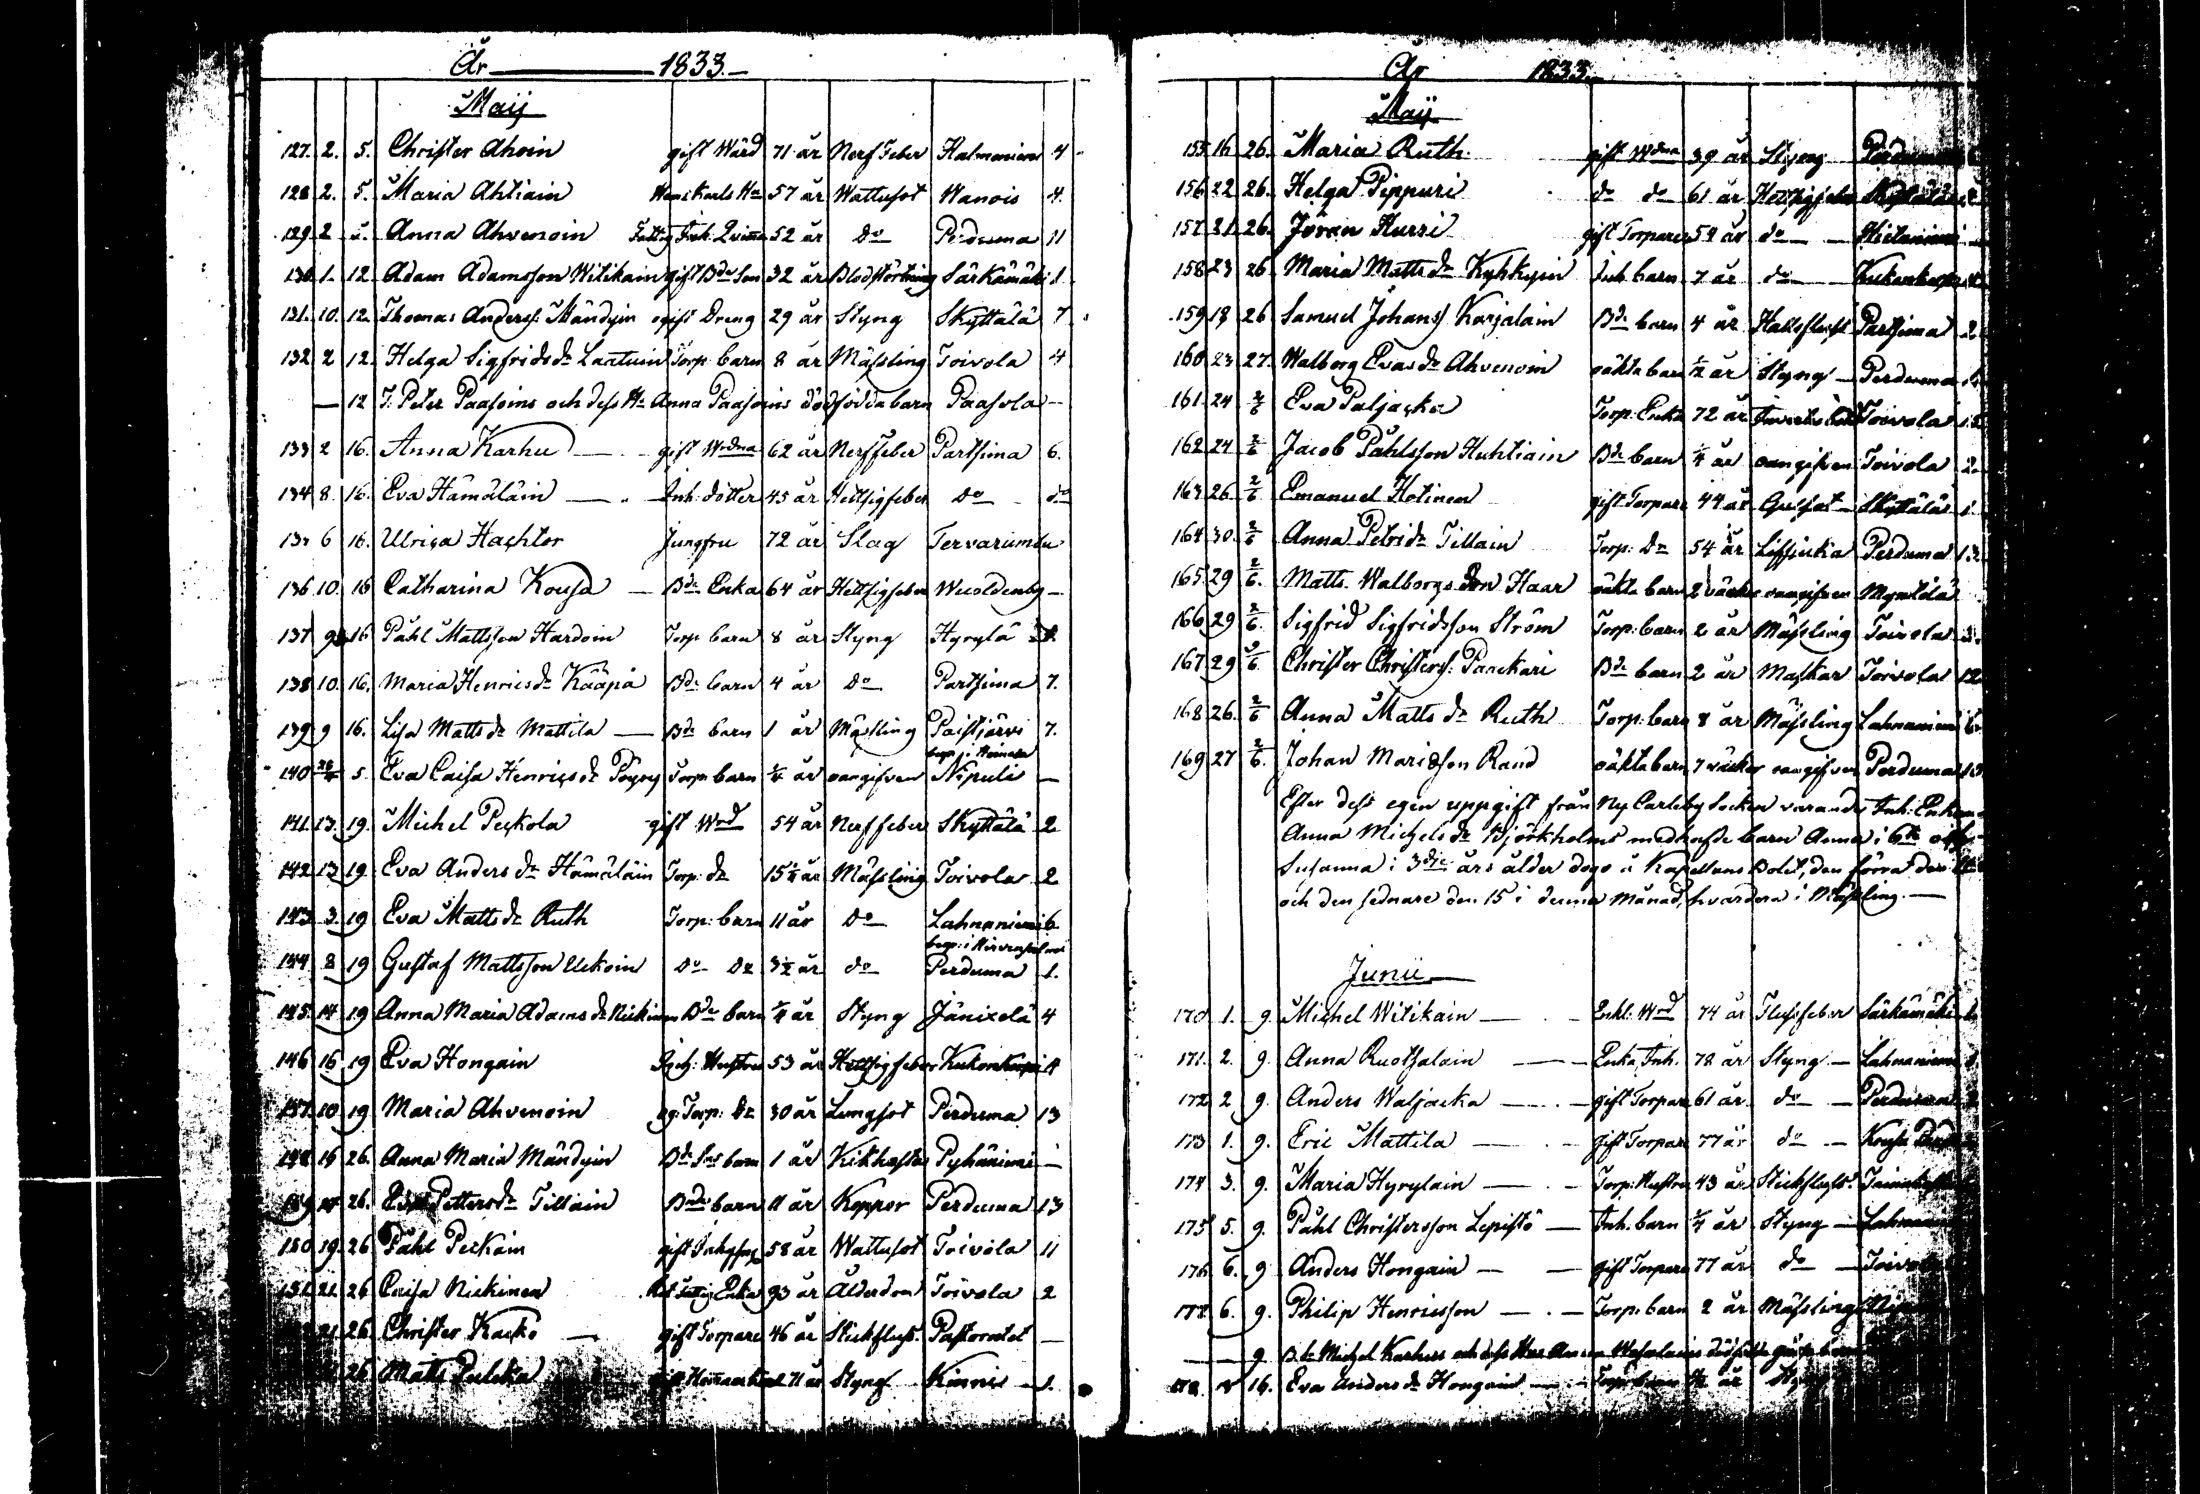 År 1833.
Maij
127. 2. 5. Christer Ahoin gift Wärd 71 år Nerf Feber Halmeniemi 4
128 2. 5. Maria Ahtiain 57 år Wattusot Wanois 4.
129 2 5. Anna Ahvenoin Fattig Inh: Qvinna 52 år Do Perduma 11
130 1. 12. Adam Adamsson Witikain gift Bde Son 32 år Blodstörtning Särkämäki 1
131. 10. 12. Thomas Anderss: Mändyin ogift Dreng 29 år Styng Skyttälä 7
132 2 12. Helga Sigfrids dr Lantuin Torp barn 8 år Mässling Toivola 4
— 12 T: Peter Paasoins och dess Hu Anna Paasoins dödfödda barn Paasola —
133 2 16. Anna Karhu gift Wrdna 62 år Nerffeber Partsima 6.
134 8. 16. Eva Hämäläin Inh: dotter 45 år Hettsigfeber Do do
135 6 16. Ulrica Hachter Jungfru 72 år Slag Tervarumbu
136 10. 16 Catharina Kousa — Bde Enka 64 år Hettsigfeber —
137 9 16 Påhl Mattsson Hardoin Torp barn 8 år Styng Hyrylä
138 10. 16. Maria Henrics dr Kääpä Bde barn 4 år Do Partsima 7.
139 9 16. Lisa Matts dr Mattila — Bde barn 1 år Mässling Paistjärvi 7.
140 5. Eva Caisa Henrics dr Torp barn 1/4 år oangifven Nipuli —
141. 13. 19. Michel Peckola gift Wrd 54 år Nerffeber Skyttälä 2
142 13 19 Eva Anders dr Hämäläin Torp: dr 15 år Mässling Toivola 2
143 3. 19 Eva Matts dr Ruth Torp: barn 11 år Do Lahnaniemi 6
begr: i Hirvensalmi
144 8 19 Gustaf Mattsson Uckoin Do Do 3 1/2 år do Perduma 1.
145. 14 19 Anna Maria Adams dr Nickinen Bde barn 1/4 år Styng Jänixelä 4
146 16 19 Eva Hongain Hustru 53 år Hettsigfeber 4
147 10 19 Maria Ahvenoin Torp: Dr 30 år Lungsot Perduma 13
148 14 26. Anna Maria Mändyin Bde Sons barn 1 år Kikhosta Pyhäniemi —
149 26. Petters dr Tillain Bde barn 11 år Koppor Perduma 13
150 19. 26 Påhl Peckain gift 58 år Wattusot Toivola 11
151 21. 26 Caisa Nickinen Enka 93 år Ålderdom Toivola 2
21. 26. Christer Kacko — gift Torpare 46 år Stickfluss. Pastoratet —
26 Matts Pulcka 71 år Styng Kinnis 1.
År 1833.
Maij
155 16 26. Maria Ruth gift Wrdna 39 år Styng Perduma
156 22 26. Helga Pippuri do do 61 år Hettsigfeber Skyttälä
157 21. 26. Jöran Kurri gift Torpare 54 år do Hietaniemi
158 23 26 Maria Matts dr Kyhkyin Inh. barn 7 år do
159 18 26 Samuel Johanss Karjalain Bde barn 4 år Partsima 2
160 23 27. Walborg Evas dr Ahvenoin oäkta barn 1/2 år Styng — Perduma
161 24 2/6 Eva Paljacka Torp: Enka 72 år Toivola
162 24 2/6 Jacob Påhlsson Huhtiain Bde barn 1/4 år oangifven Toivola 2
163 26 2/6 Emanuel Hotinen gift Torpare 44 år Gulsot — Skyttälä 1
164 30. 2/6 Anna Petris dr Tillain Torp: Dr 54 år Perduma 13
165 29 2/6. Matts Walborgs son Haar oäkta barn 2 veckor oangifven
166 29 2/6. Sigfrid Sigfridsson Ström Torp: barn 2 år Mässling Toivola
167 29 2/6 Christer Christerss: Paackari Bde barn 2 år Maskar Toivola 12
168 26. 2/6 Anna Matts dr Ruth Torp: barn 8 år Mässling Lahnaniemi 6
169 27 2/6. Johan Mariæson Rand oäkta barn 7 veckor oangifven Perduma 13
Efter dess egen uppgift från Ny Carleby Socken varande Inh: Enkan
Anna Michels dr Björkholms medhafde barn Anna i 6te och
Susanna i 3dje års ålder dogo å Kapellans Bolet, den förra den
och den sednare den 15 i denna månad, hvardera i Mässling. —
Junii
170 1. 9. Michel Witikain — Enkl: Wrd 74 år Flussfeber Särkämäki
171. 2. 9. Anna Ruotsalain — Enka, Inh. 78 år Styng — Lahnaniemi
172 2 9. Anders Waljacka — gift Torpare 61 år do — Perduma
173 1. 9. Eric Mattila — gift Torpare 77 år do —
174 3. 9. Maria Hyrylain — Torp: Hustru 43 år Stickfluss:
175 5. 9. Påhl Christersson Lepistö — Inh. barn 1/4 år Styng —
176 6. 9 Anders Hongain — gift Torpare 77 år do — Toivola
177 6. 9. Philip Henricsson — Torp: barn 2 år Mässling
— 9 Bde Michel Karhus och dess Hu Anna
178 16. Eva Anders dr Hongain — Torp: barn år